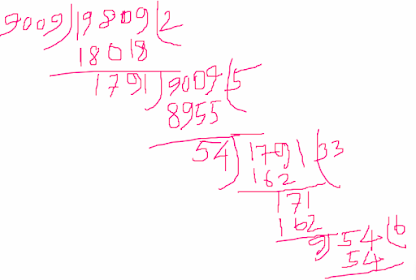 9009)19809(2
18018
1791)9009(5
8955
54)1791(33
162
171
162
9)54(6
54